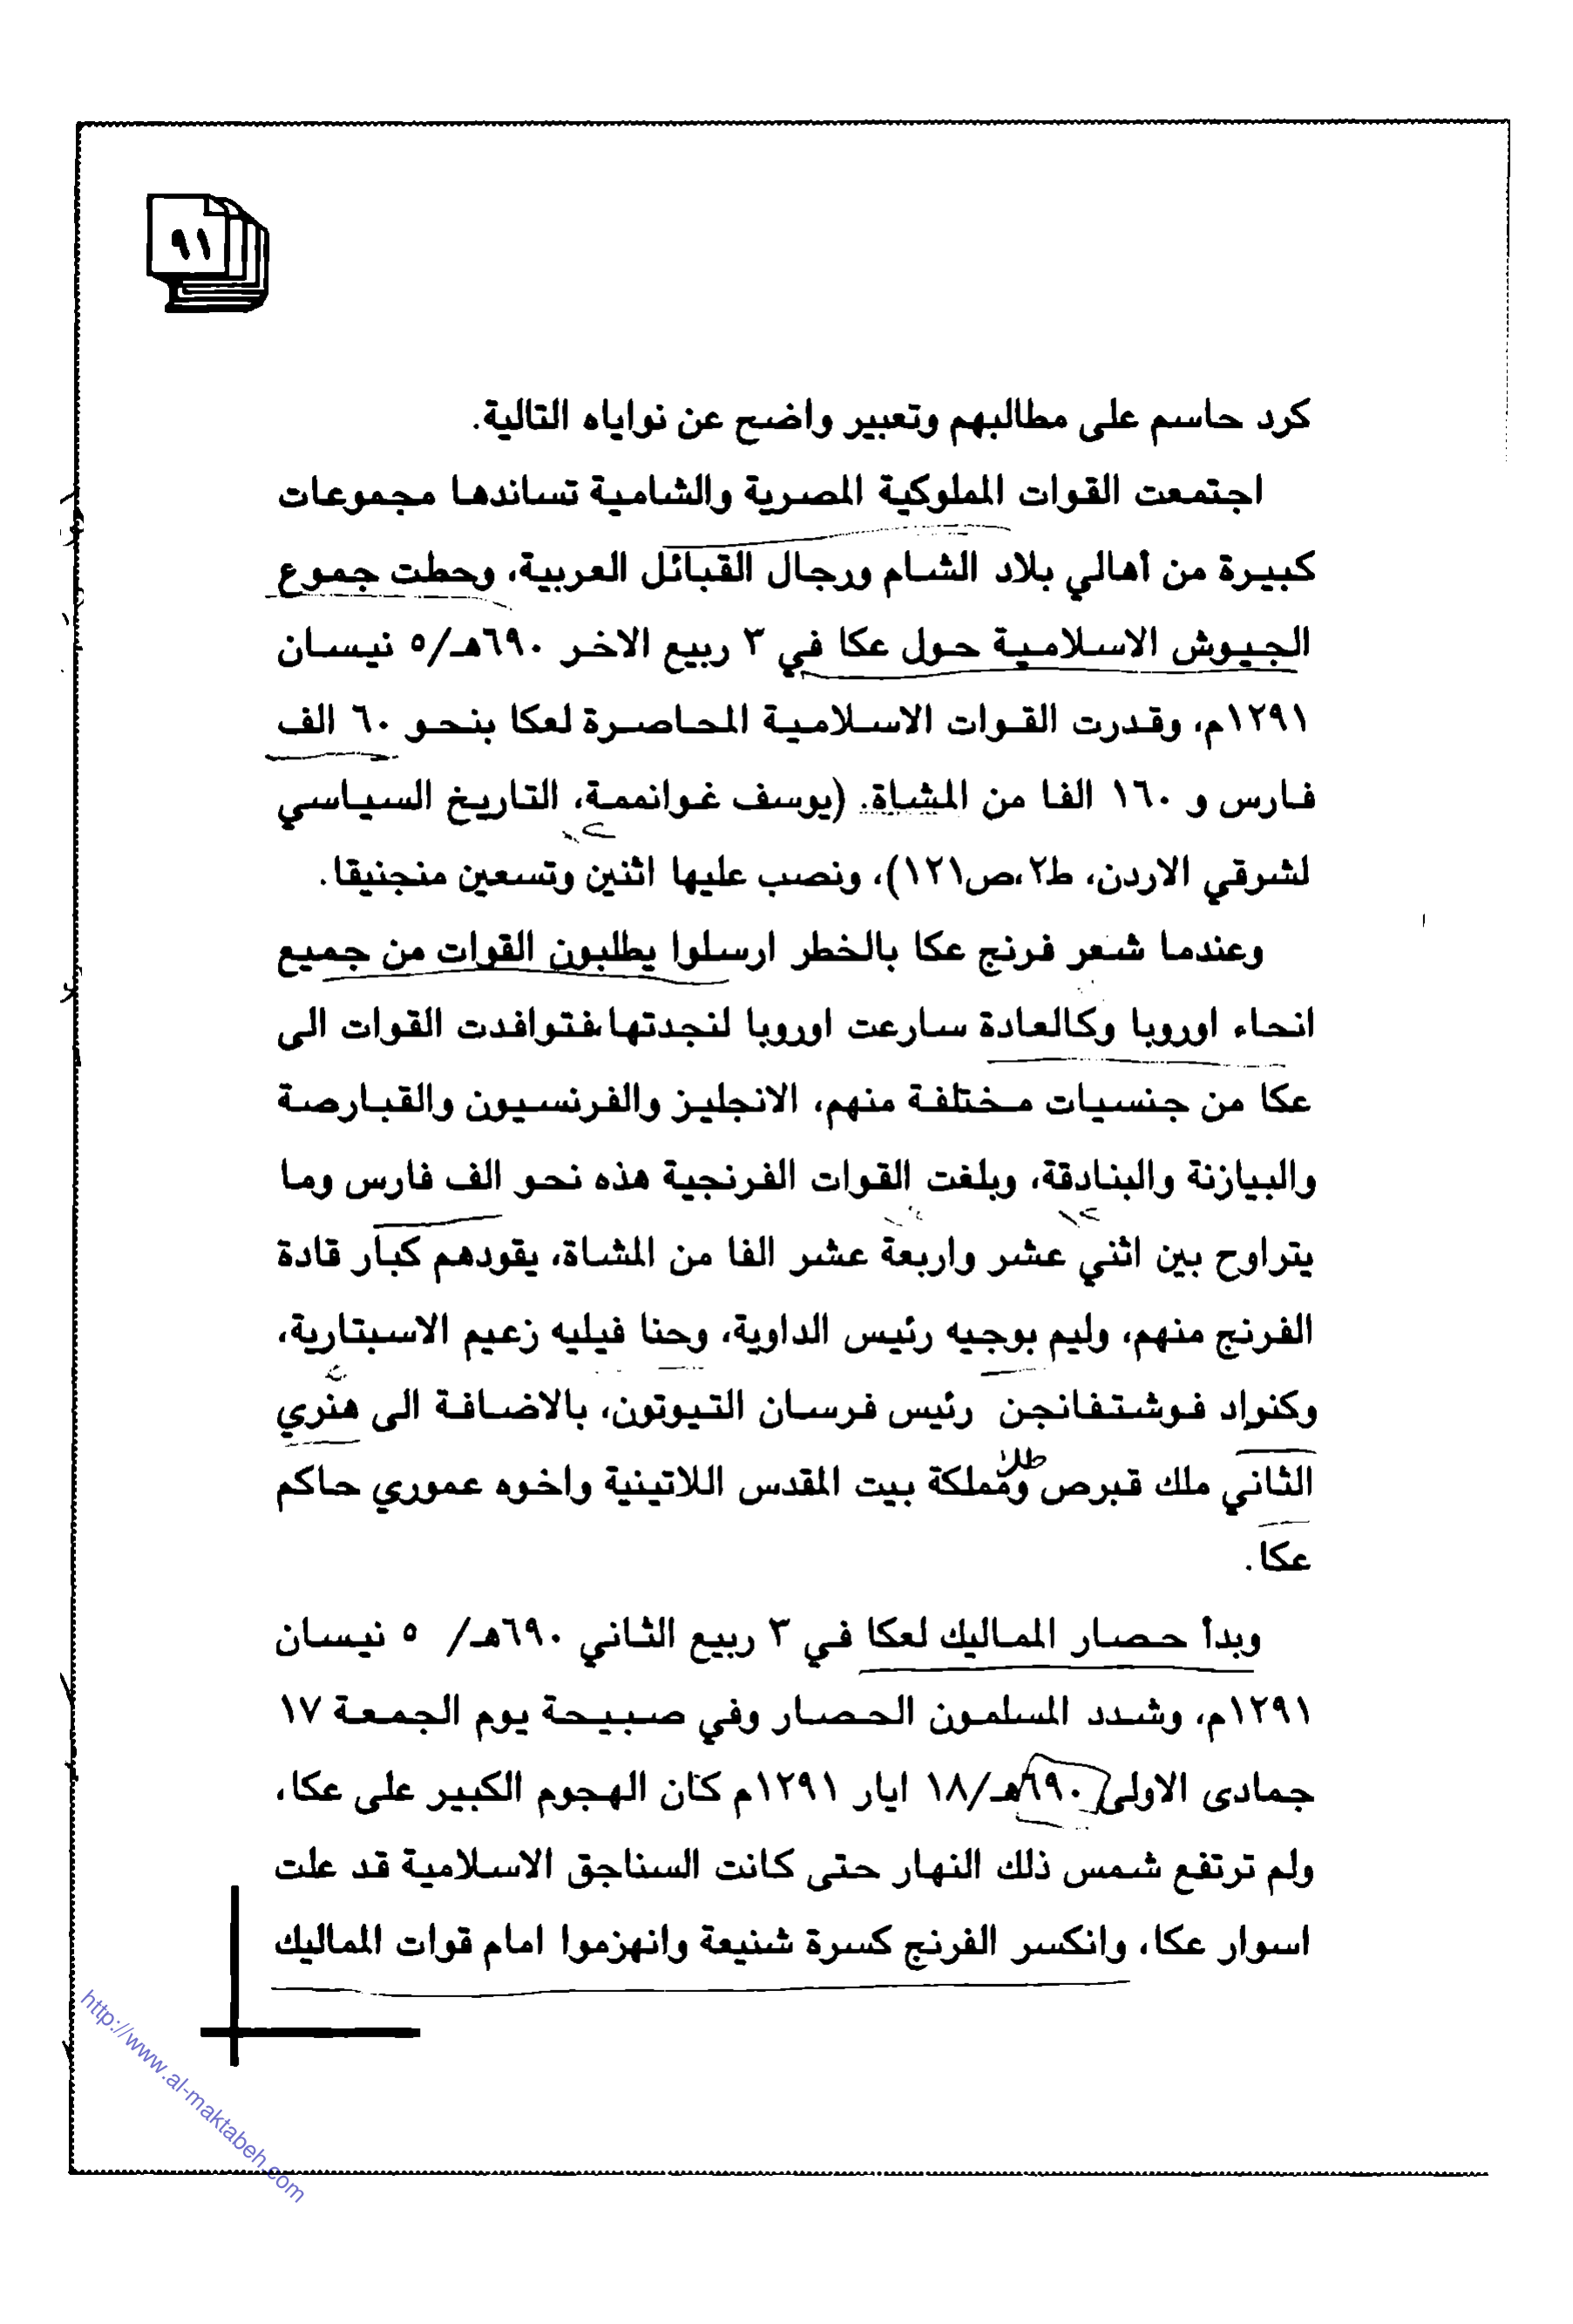 ٩١
كرد حاسم على مطالبهم وتعبير واضح عن نواياه التالية.
اجتمعت القوات المملوكية المصرية والشامية تساندها مجموعات
كبيرة من أهالي بلاد الشام ورجال القبائل العربية، وحطت جموع
الجيوش الاسلامية حول عكا في ٣ ربيع الاخر ٦٩٠هـ/٥ نيسان
١٢٩١م، وقدرت القوات الاسلامية المحاصرة لعكا بنحو ٦٠ الف
فارس و ١٦٠ الفا من المشاة. (يوسف غوانممة، التاريخ السياسي
لشرقي الاردن، ط٢،ص١٢١)، ونصب عليها اثنين وتسعين منجنيقا.
وعندما شعر فرنج عكا بالخطر ارسلوا يطلبون القوات من جميع
انحاء اوروبا وكالعادة سارعت اوروبا لنجدتها،فتوافدت القوات الى
عكا من جنسيات مختلفة منهم، الانجليز والفرنسيون والقبارصة
والبيازنة والبنادقة، وبلغت القوات الفرنجية هذه نحو الف فارس وما
يتراوح بين اثني عشر واربعة عشر الفا من المشاة، يقودهم كبار قادة
الفرنج منهم، وليم بوجيه رئيس الداوية، وحنا فيليه زعيم الاسبتارية،
وكنراد فوشتفانجن رئيس فرسان التيوتون، بالاضافة الى هنري
الثاني ملك قبرص ومملكة بيت المقدس اللاتينية واخوه عموري حاكم
عكا.
وبدأ حصار المماليك لعكا في ٣ ربيع الثاني ٦٩٠هـ/ ٥ نيسان
١٢٩١م، وشدد المسلمون الحصار وفي صبيحة يوم الجمعة ١٧
جمادى الاولى ٦٩٠هـ/١٨ ايار ١٢٩١م كان الهجوم الكبير على عكا،
ولم ترتفع شمس ذلك النهار حتى كانت السناجق الاسلامية قد علت
اسوار عكا، وانكسر الفرنج كسرة شنيعة وانهزموا امام قوات المماليك
http://www.al-maktabeh.com